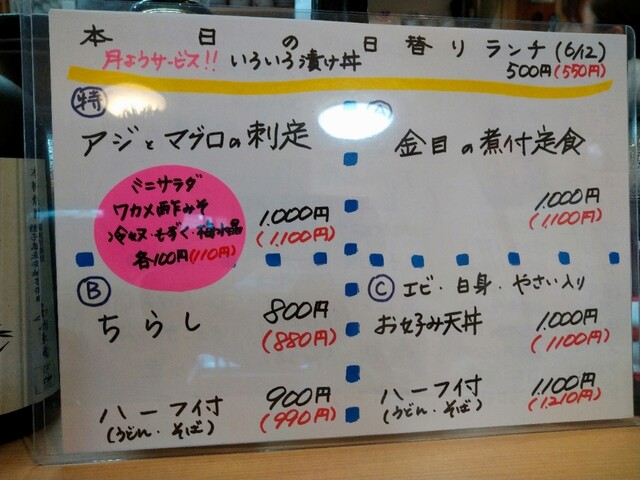 本日の日替りランチ(6/12)
月ようサービス!! いろいろ漬け丼 500円(550円)
特
アジとマグロの刺定
1.000円
(1.100円)
ミニサラダ
ワカメ酢みそ
冷奴・もずく・梅水晶
各100円(110円)
A
金目の煮付定食
1.000円
(1.100円)
B
ちらし
800円
(880円)
ハーフ付
(うどん・そば)
900円
(990円)
C エビ・白身・やさい入り
お好み天丼
1.000円
(1100円)
ハーフ付
(うどん・そば)
1.100円
(1.210円)